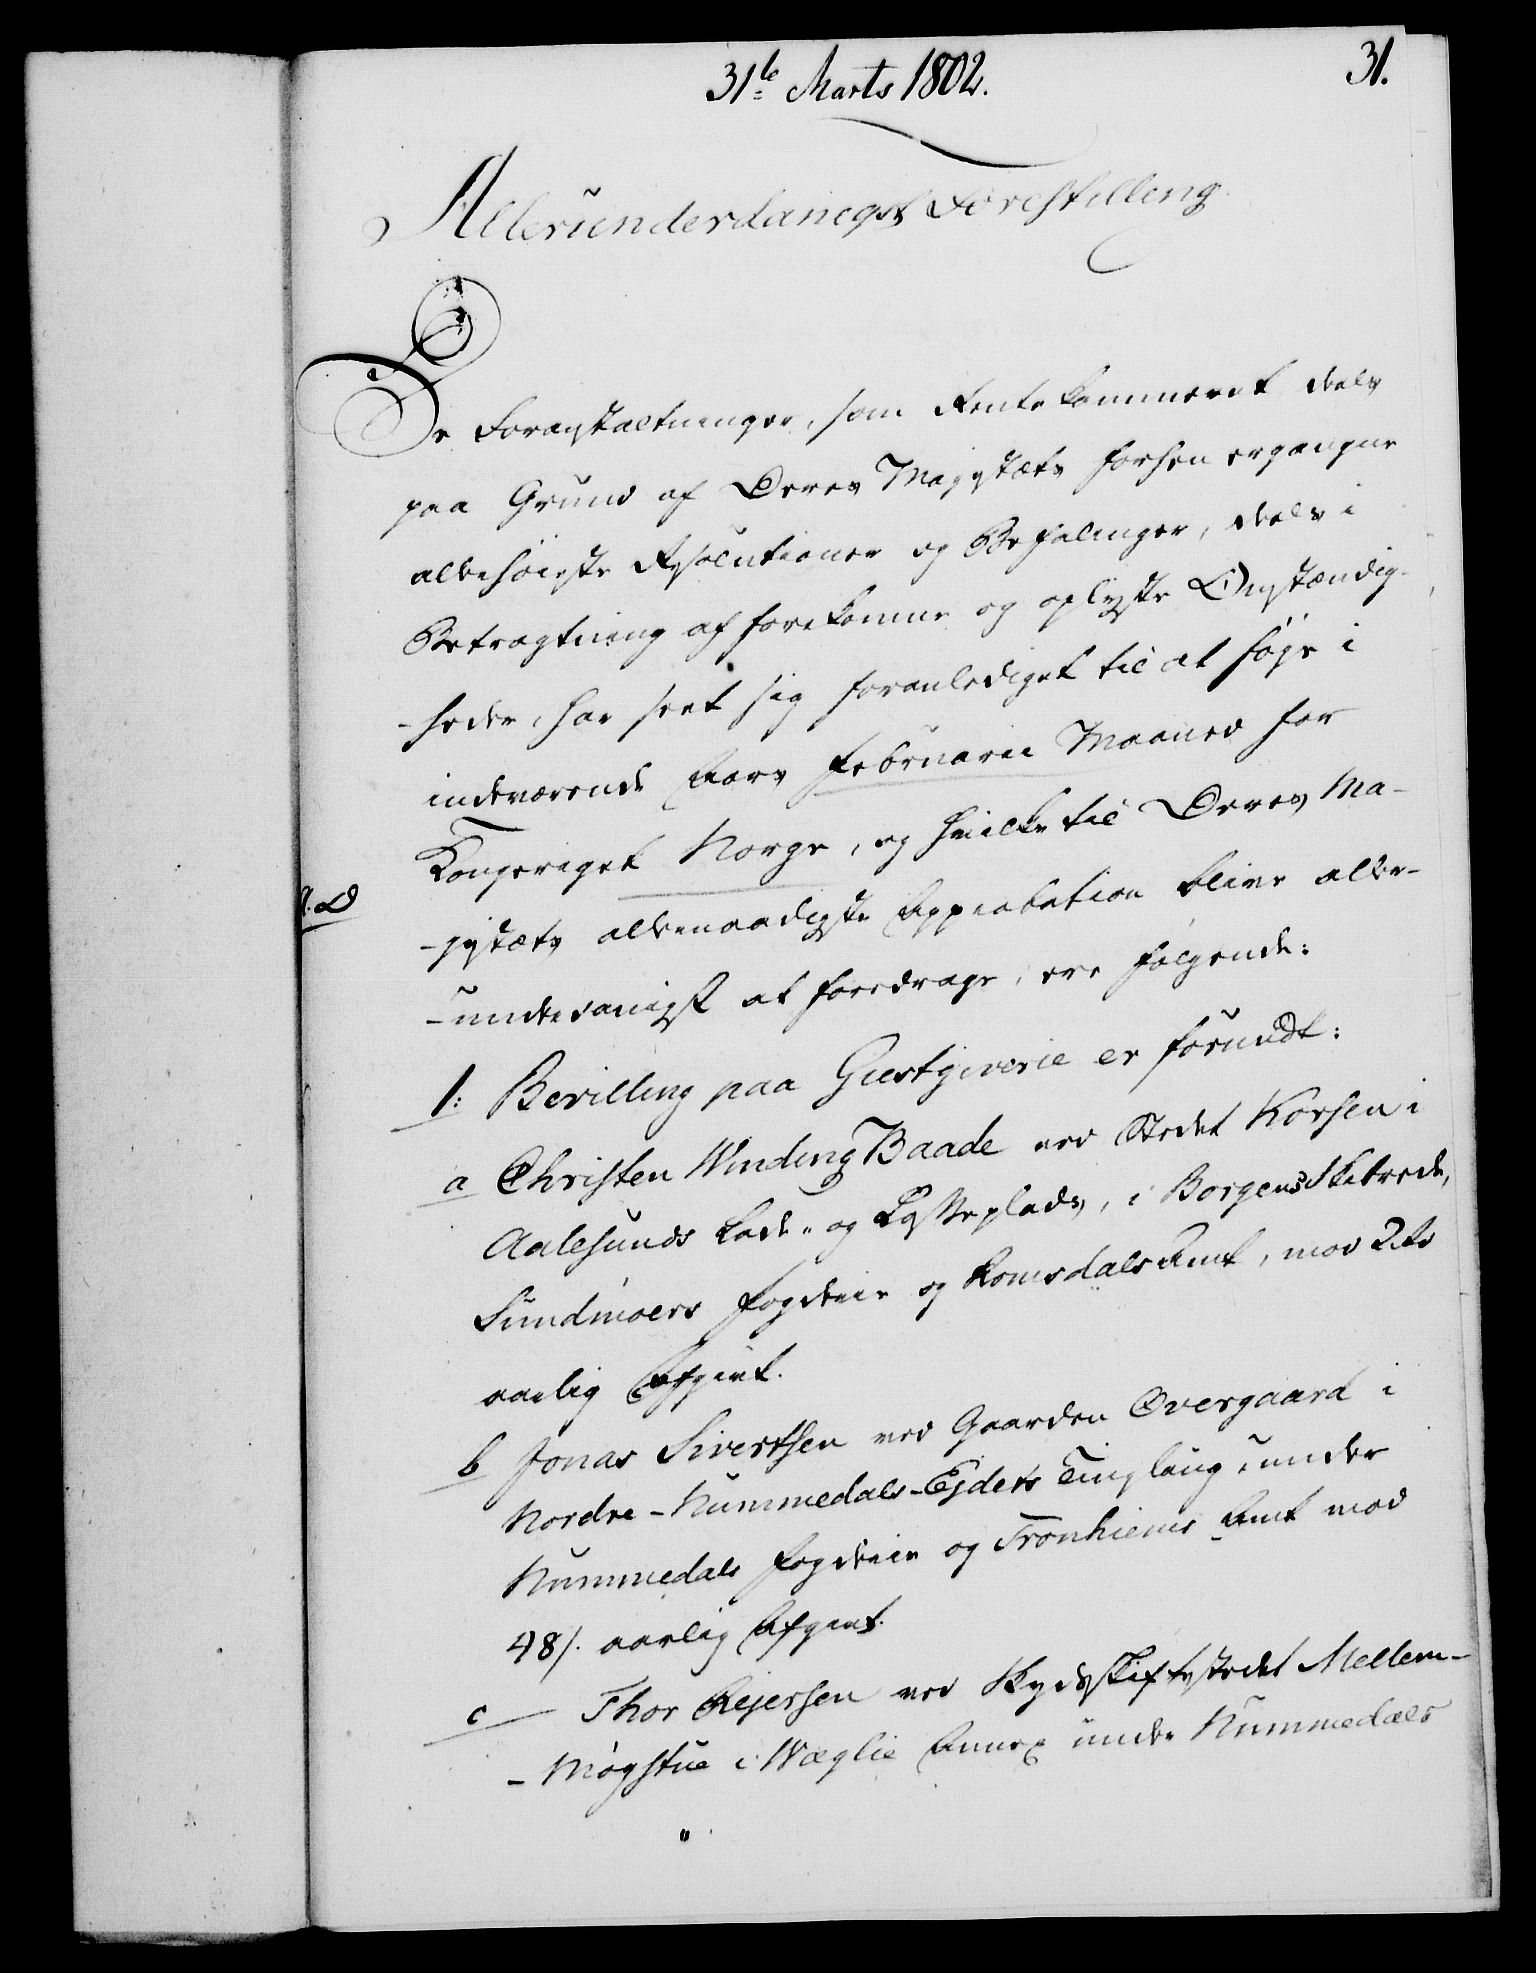 31te Marts 1802.
31.
Allerunderdanigst Forestilling
De Foranstaltninger, som Rentekammeret deels
paa Grund af Deres Majestæts forhen ergangne
allerhøieste Resolutioner og Befalinger, deels i
Betragtning af forekomne og oplyste Omstændig-
-heder, har seet sig foranlediget til at føje i
indeværende Aars Februarii Maaned for
Kongeriget Norge, og hvilke til Deres Ma-
-jestæts allernaadigste Approbation blive aller-
-underdanigst at foredrage, ere følgende:
1: Bevilling paa Giestgiverie er forundt:
a Christen Winding Baade ved Stedet Korsen i
Aalesunds Lade- og Losseplads, i Borgens Skibrede,
Sundmøers Fogderie og Romsdals Amt, mod 2 Rd
aarlig Afgivt.
b Jonas Sivertsen ved Gaarden Overgaard i
Nordre-Nummedals-Ejdets Tinglaug, under
Nummedals Fogderie og Tronhiems Amt mod
48 s. aarlig Afgivt.
c Thor Rejersen ved Skydsskiftestedet Mellem-
-Møgstue i Wæglie Annex under Nummedals